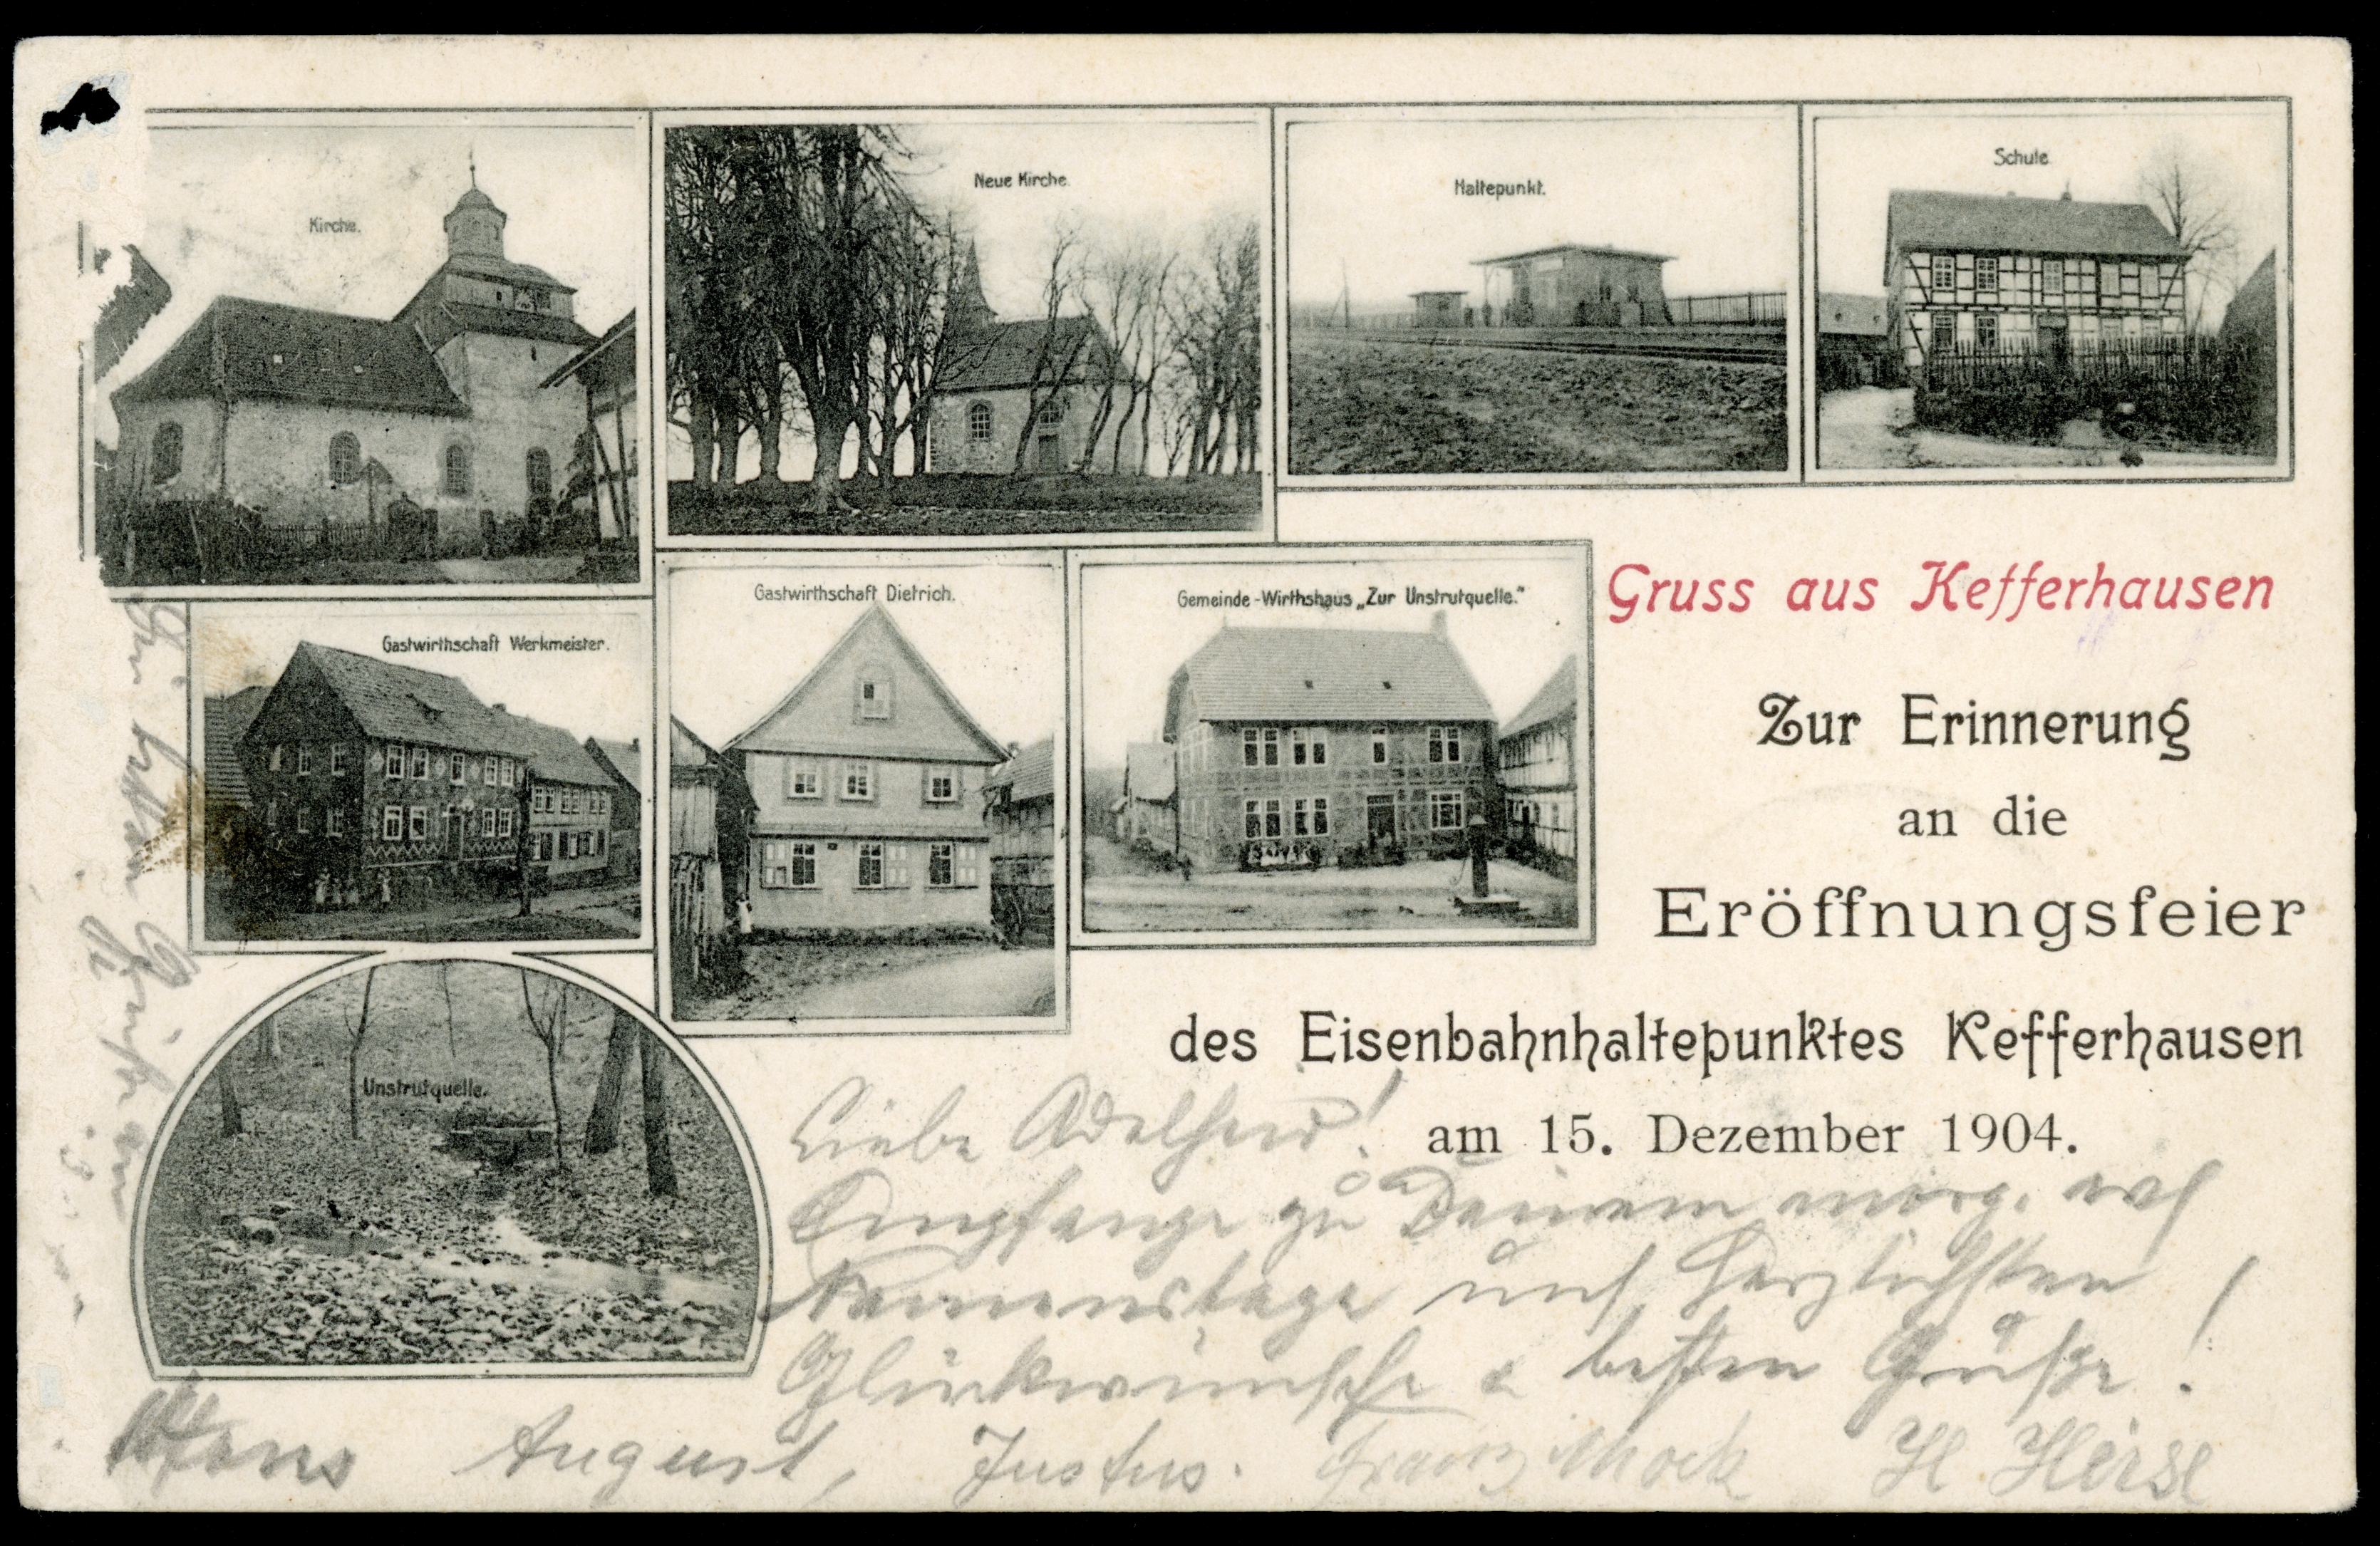 Kirche.
Neue Kirche.
Haltepunkt.
Schule
Gastwirthschaft Werkmeister.
Gastwirthschaft Dietrich.
Gemeinde-Wirthshaus „Zur Unstrutquelle.“
Unstrutquelle.
Gruss aus Kefferhausen
Zur Erinnerung
an die
Eröffnungsfeier
des Eisenbahnhaltepunktes Kefferhausen
am 15. Dezember 1904.
Liebe Adelheid!
Empfange zu Deinem morg.
Namenstage uns herzlichsten
Glückwünsche u besten Grüße!
Hans August, Justus. Franz Mock H Heise